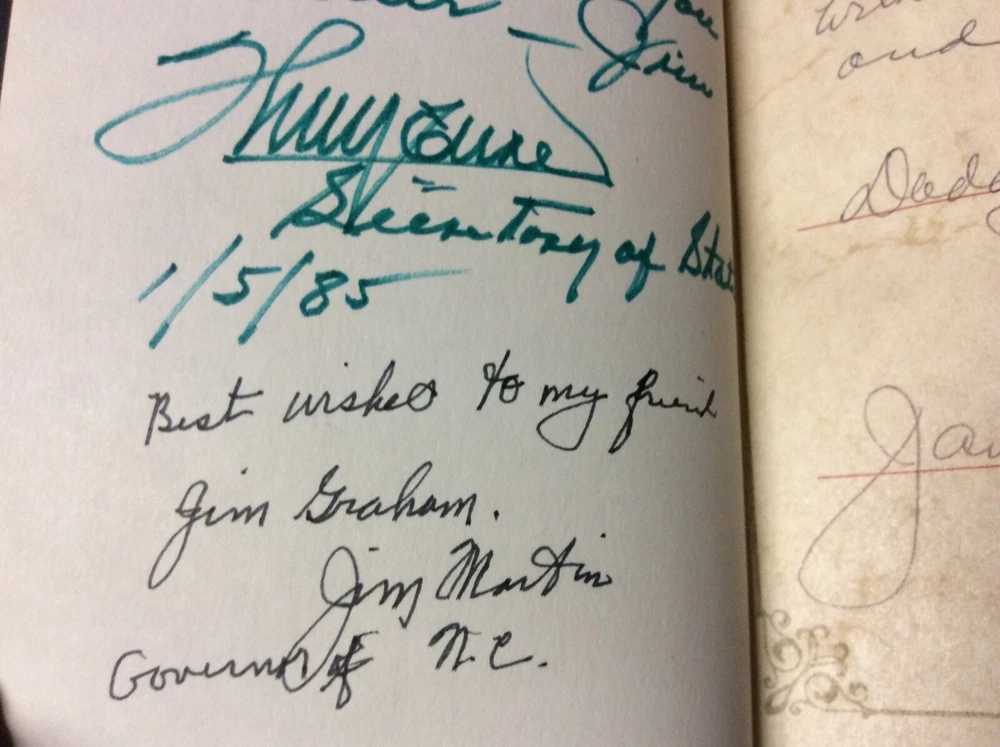 Jim
Thuy Eure
Secretary of Sta
1/5/85
Best wishes to my friend
Jim Graham.
Jim Martin
Governor of N.C.
and
Dad
Ja